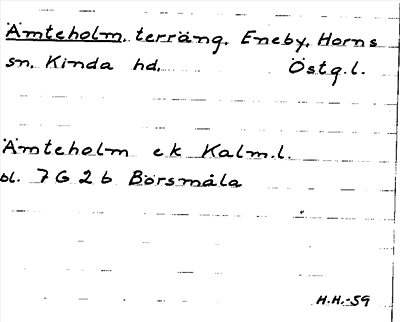 Ämteholm. terräng. Eneby, Horns
sn. Kinda hd. Östg.l.
Ämteholm ek Kalm.l.
bl. 7G2b Börsmåla
H.H.-59